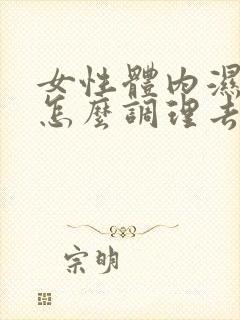 女性體內濕
怎麼調理去
宗明